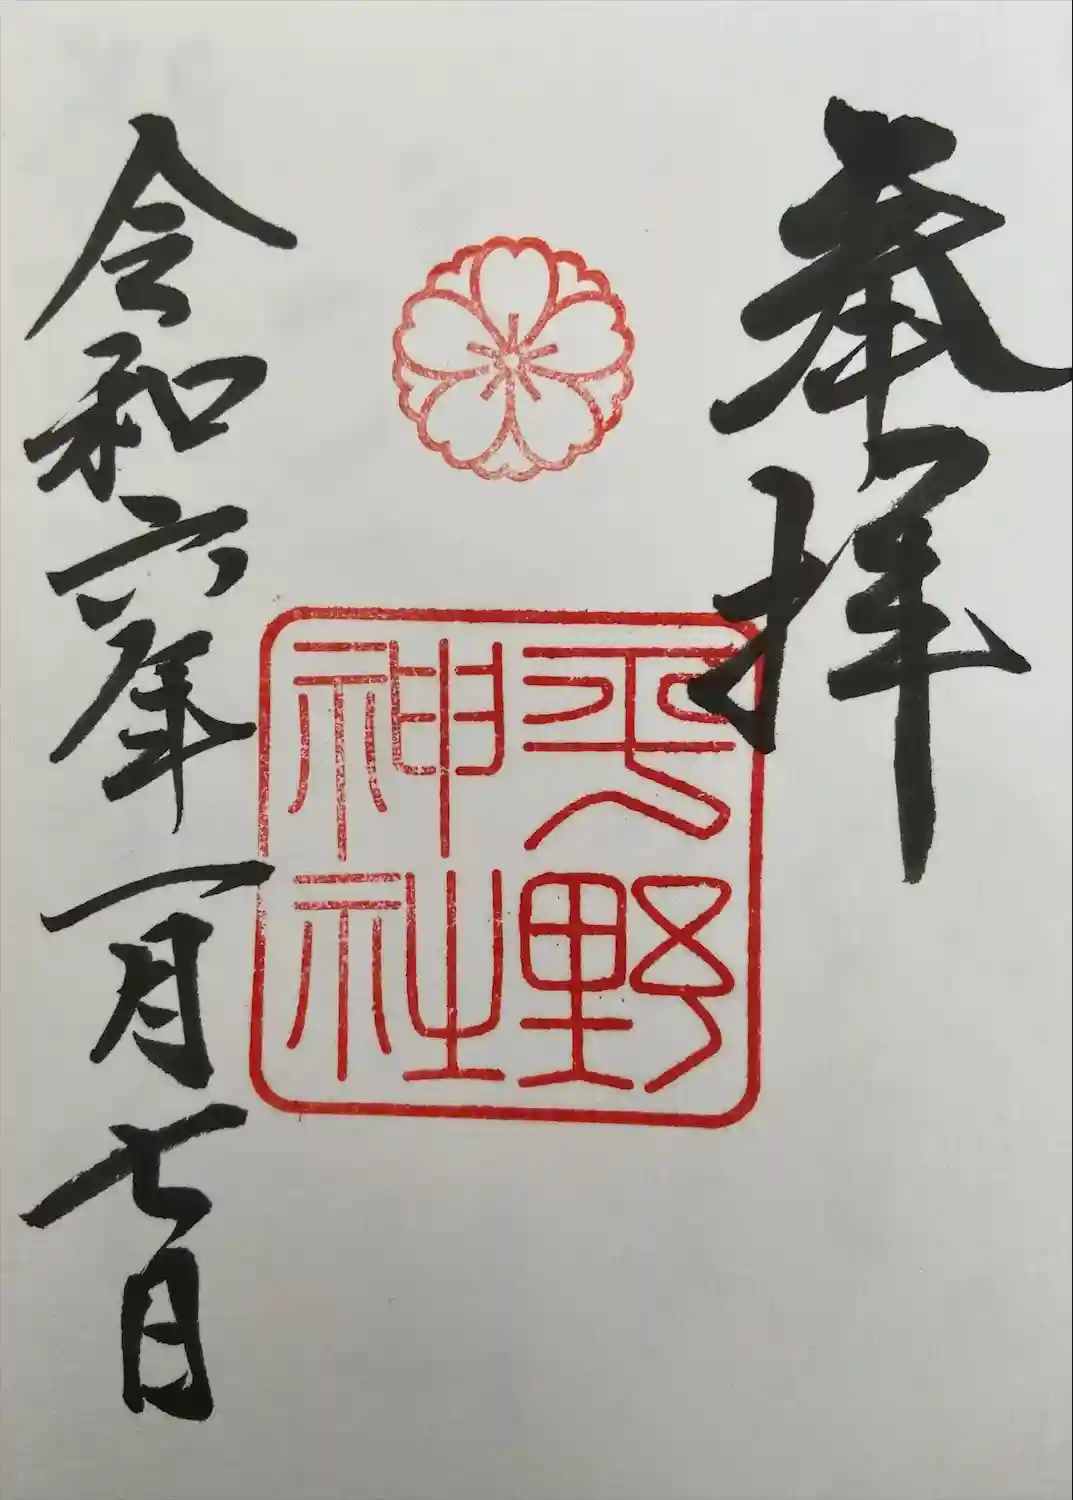 奉拝
平野神社
令和六年一月七日